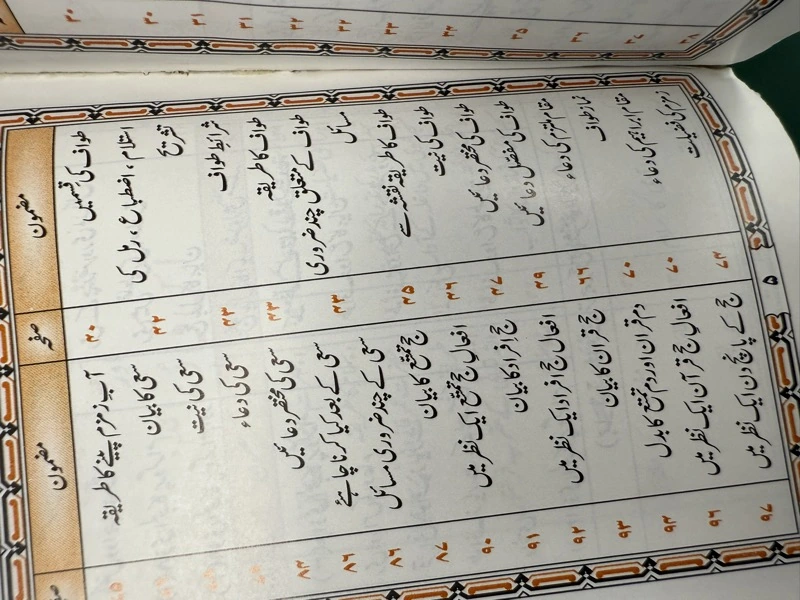 مضمون
صفحہ
طواف کی قسمیں
۴۰
استلام، اضطباع، رمل کی
تشریح
۴۲
شرائط طواف
۴۳
طواف کا طریقہ
طواف کے متعلق چند ضروری
مسائل
طواف کا طریقہ نقشہ سے
۴۵
طواف کی نیت
۴۶
طواف کی مختصر دعائیں
۴۷
طواف کی مفصل دعائیں
۴۹
مقام ملتزم کی دعاء
۶۶
نماز طواف
۷۰
مقام ابراہیم کی دعاء
۷۰
زمزم کی فضیلت
۷۳
مضمون
آب زمزم پینے کا طریقہ
سعی کا بیان
سعی کی نیت
سعی کی دعاء
سعی کی مختصر دعائیں
سعی کے بعد کیا کرنا چاہئے
۸۶
سعی کے چند ضروری مسائل
۸۶
حج تمتع کا بیان
۸۷
افعال حج تمتع ایک نظر میں
۹۰
حج افراد کا بیان
۹۱
افعال حج افراد ایک نظر میں
۹۲
حج قران کا بیان
۹۳
دم قران اور دم تمتع کا بدل
۹۴
افعال حج قرآن ایک نظر میں
۹۶
حج کے پانچ دن ایک نظر میں
۹۷
۵